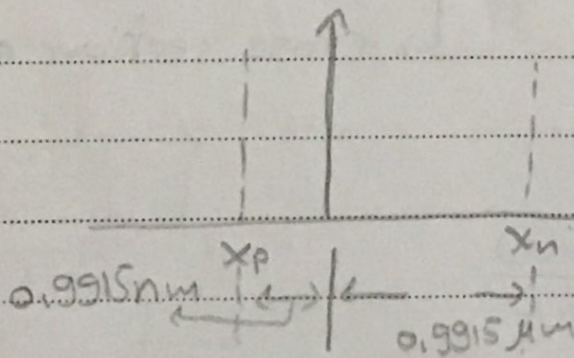 xp xn
0.9915nm
0.9915 μm